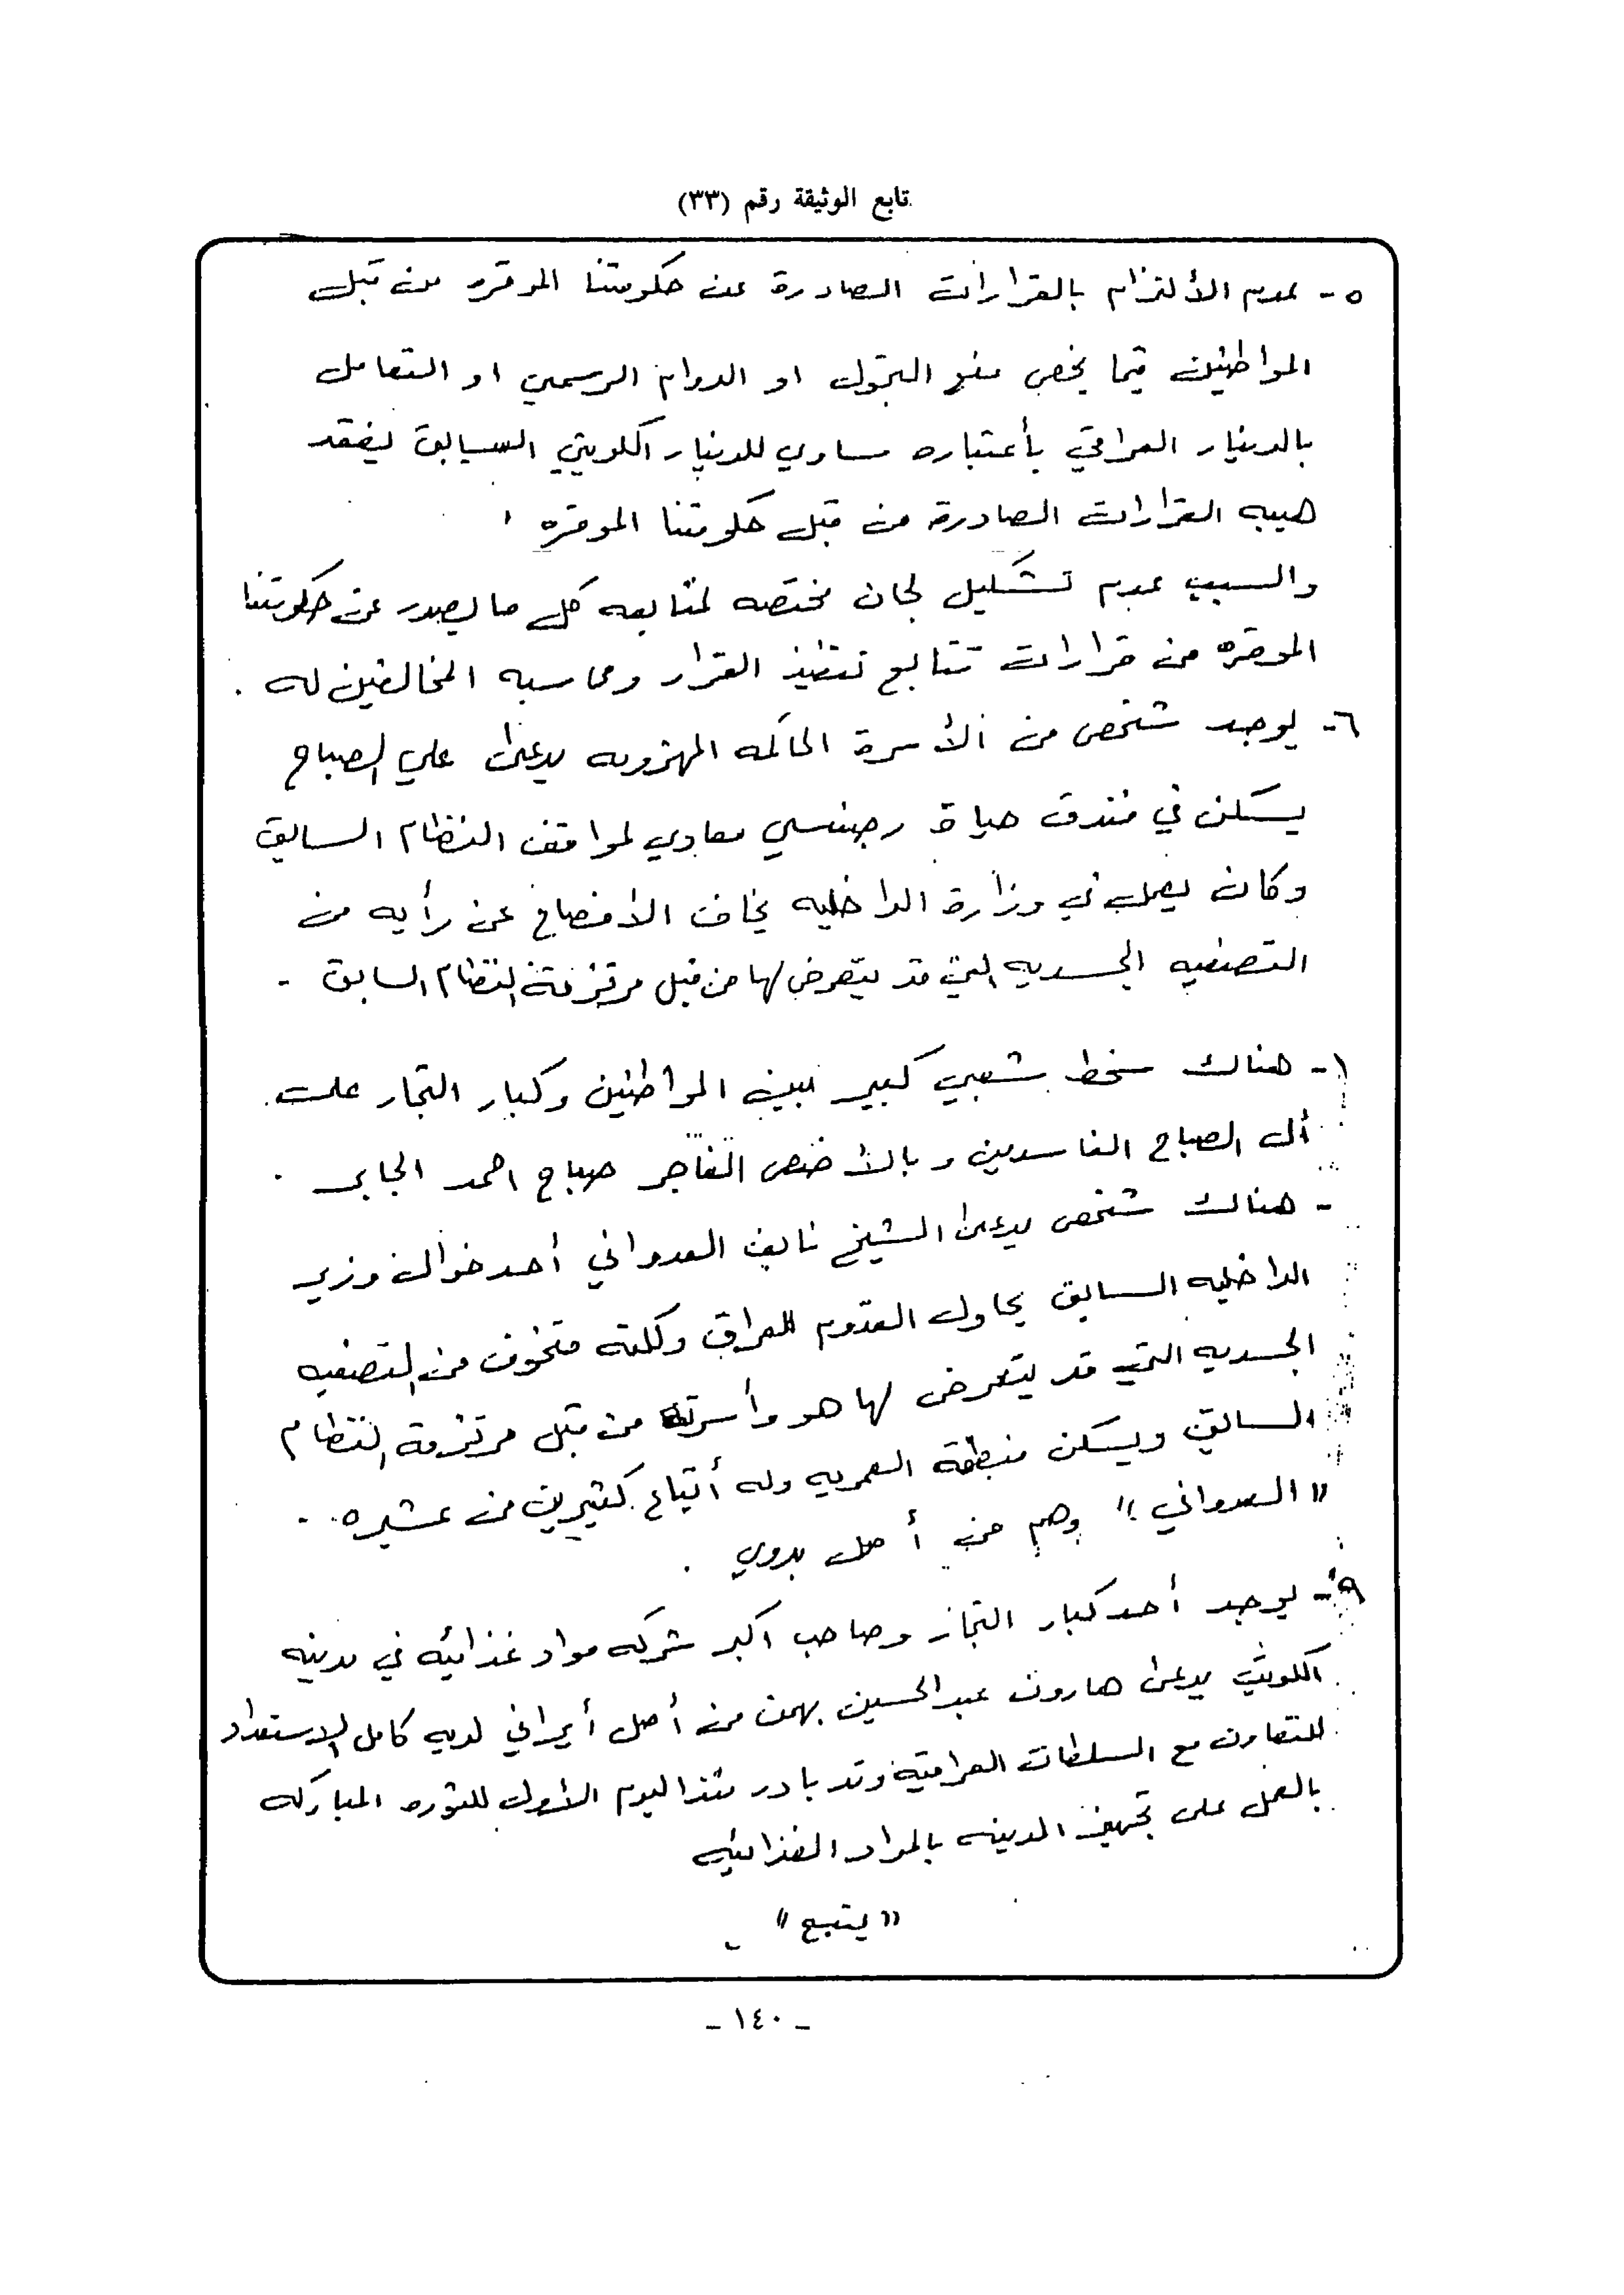 تابع الوثيقة رقم (٣٣)
٥- عدم الألتزام بالقرارات الصادرة عن حكومتنا الموقره من قبل
المواطنين فيما يخص منع التجول او الدوام الرسمي او التعامل
بالدينار العراقي بأعتباره مساوي للدينار الكويتي السابق ليفقد
هيبه القرارات الصادرة من قبل حكومتنا الموقره
والسبب عدم تشكيل لجان مختصه لمتابعه كل ما يصدر عن حكومتنا
الموقره من قرارات تتابع تنفيذ القرار ومحاسبه المخالفين له .
٦- يوجد شخص من الأسرة الحاكمه المهزومه يدعى علي الصباح
يسكن في فندق حياة رجنسي معادي لمواقف النظام السابق
وكان يعمل في وزارة الداخليه يخاف الافصاح عن رأيه من
التصفيه الجسديه التي قد يتعرض لها من قبل مرتزقة النظام السابق -
١- هناك سخط شعبي كبير بين المواطنين وكبار التجار على
أل الصباح الفاسدين وبالأخص الفاجر صباح احمد الجابر .
- هناك شخص يدعى الشيخ نايف العدواني أحد خوال وزير
الداخليه السابق يحاول القدوم للعراق ولكنه متخوف من التصفيه
الجسديه التي قد يتعرض لها هو وأسرته من قبل مرتزقة النظام
السابق ويسكن منطقة العمريه وله أتباع كثيرين من عشيره .
" العدواني " وهم من أصل بدوي .
٩- يوجد أحد كبار التجار وصاحب اكبر شركه مواد غذائيه في مدينه
الكويت يدعى هارون عبدالحسين بهمن من أصل أيراني لديه كامل الاستعداد
للتعاون مع السلطات العراقية وقد بادر منذ اليوم الأول للثوره المباركه
بالعمل على تجهيز المدينه بالمواد الغذائيه
" يتبع "
- ١٤٠ -